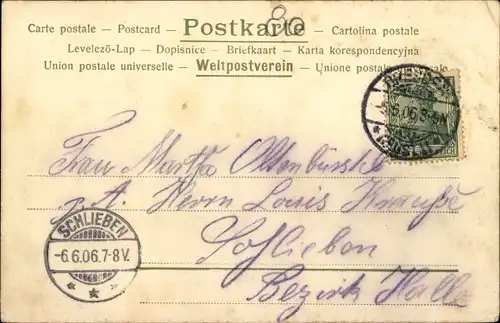 80
Carte postale — Postcard — Postkarte — Cartolina postale
Levelező-Lap — Dopisnice — Briefkaart — Karta korespondencyjna
Union postale universelle — Weltpostverein — Unione postale
6.06.3-4N
Frau Martha
Herrn Louis Krauße
Schlieben
Bezirk Halle
SCHLIEBEN
-6.6.06.7-8V.